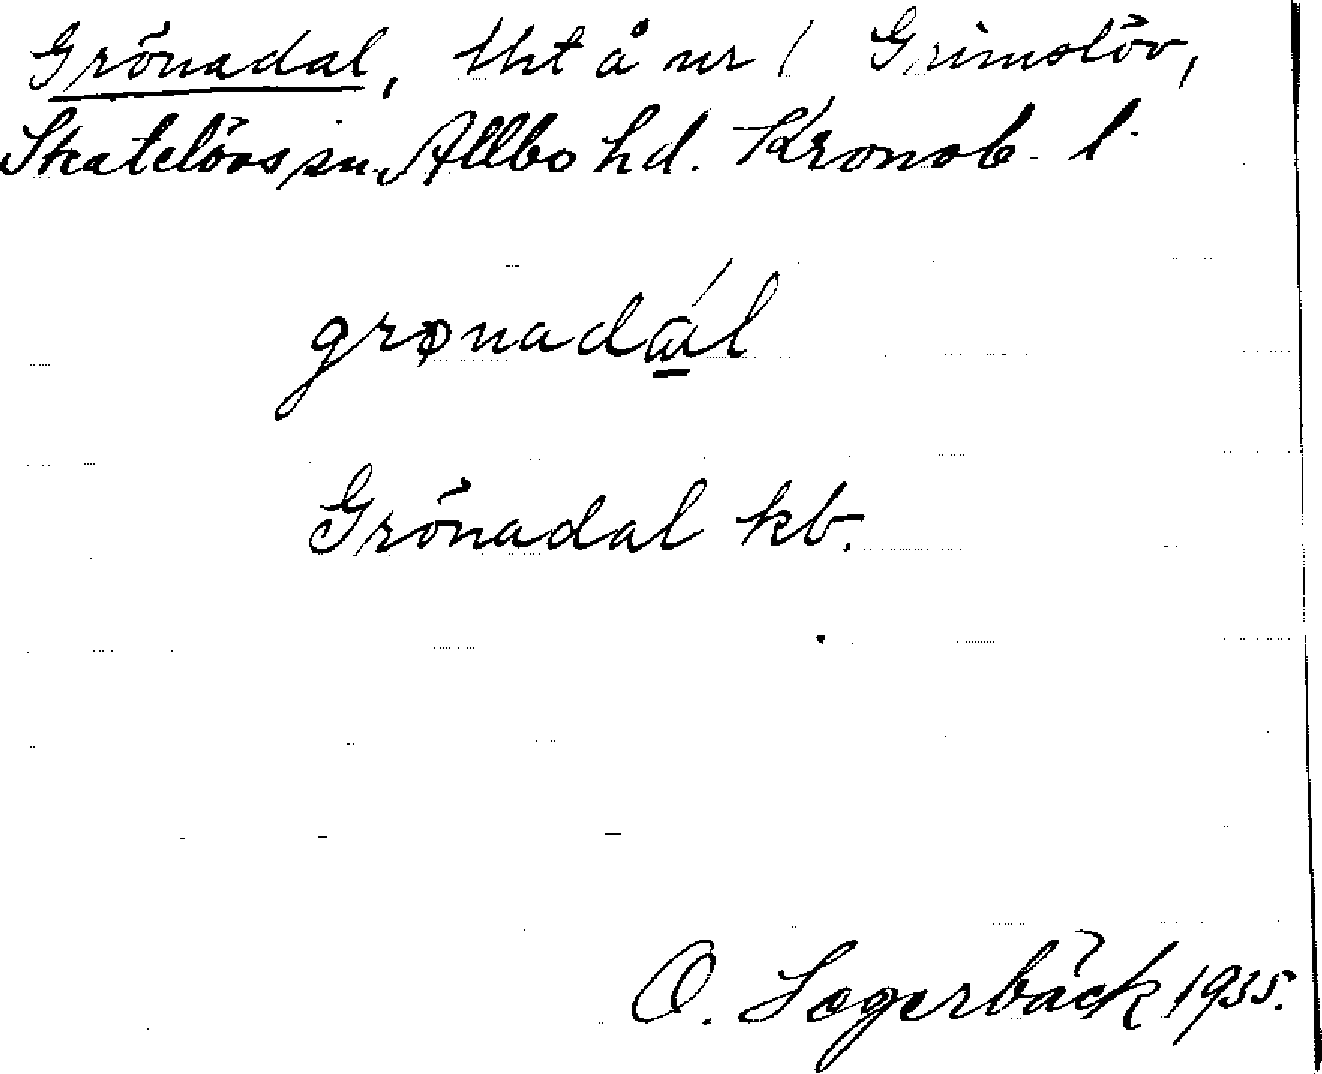 Grönadal, tht å nr 1 Grimslöv,
Skatelövs sn. Allbo hd. Kronob. l.
grønadál
Grönadal kb.
O. Lagerbäck 1935.